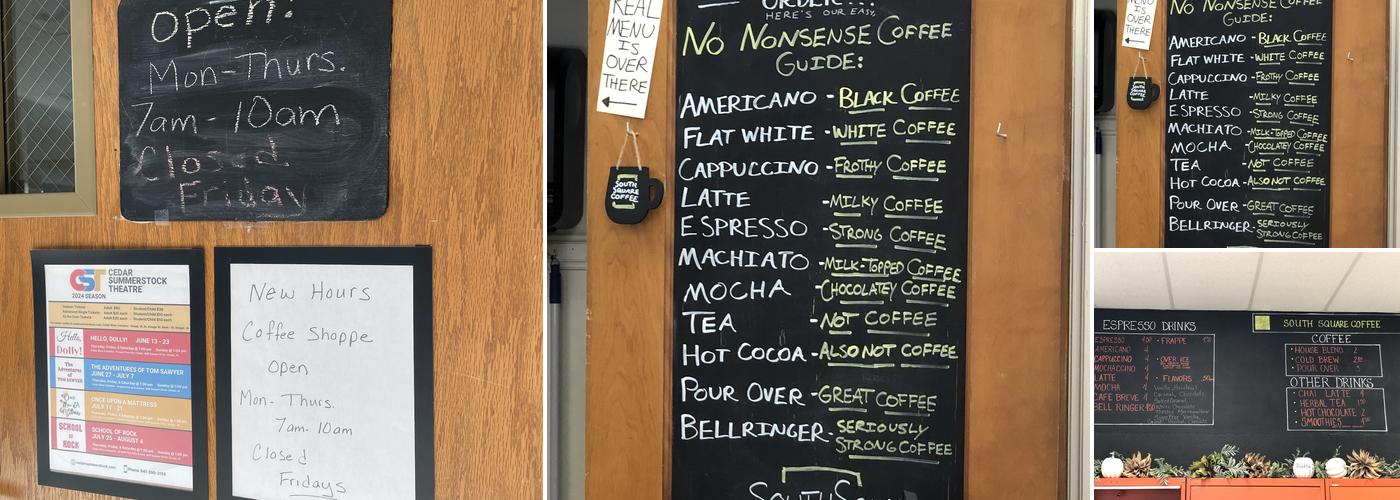 open:
Mon-Thurs.
7am-10am
Closed
Friday
CST CEDAR
SUMMERSTOCK
THEATRE
2024 SEASON
Hello,
Dolly!
HELLO, DOLLY! JUNE 13 - 23
The
Adventures
of
TOM SAWYER
THE ADVENTURES OF TOM SAWYER
JUNE 27 - JULY 7
ONCE UPON A MATTRESS
JULY 11 - 21
SCHOOL
of
ROCK
SCHOOL OF ROCK
JULY 25 - AUGUST 4
New Hours
Coffee Shoppe
Open
Mon- Thurs.
7am- 10am
Closed
Fridays
REAL
MENU
IS
OVER
THERE
SOUTH
SQUARE
COFFEE
ORDER...
HERE'S OUR EASY,
NO NONSENSE COFFEE
GUIDE:
AMERICANO - BLACK COFFEE
FLAT WHITE - WHITE COFFEE
CAPPUCCINO - FROTHY COFFEE
LATTE - MILKY COFFEE
ESPRESSO - STRONG COFFEE
MACHIATO - MILK-TOPPED COFFEE
MOCHA - CHOCOLATEY COFFEE
TEA - NOT COFFEE
HOT COCOA - ALSO NOT COFFEE
POUR OVER - GREAT COFFEE
BELLRINGER - SERIOUSLY
STRONG COFFEE
MENU
IS
OVER
THERE
SOUTH
SQUARE
COFFEE
NO NONSENSE COFFEE
GUIDE:
AMERICANO - BLACK COFFEE
FLAT WHITE - WHITE COFFEE
CAPPUCCINO - FROTHY COFFEE
LATTE - MILKY COFFEE
ESPRESSO - STRONG COFFEE
MACHIATO - MILK-TOPPED COFFEE
MOCHA - CHOCOLATEY COFFEE
TEA - NOT COFFEE
HOT COCOA - ALSO NOT COFFEE
POUR OVER - GREAT COFFEE
BELLRINGER - SERIOUSLY
STRONG COFFEE
ESPRESSO DRINKS
ESPRESSO
AMERICANO
CAPPUCCINO
MOCHACCINO
LATTE
MOCHA
CAFE BREVE
BELL RINGER
• FRAPPE
• OVER ICE
• FLAVORS
SOUTH SQUARE COFFEE
COFFEE
• HOUSE BLEND
• COLD BREW
• POUR OVER
OTHER DRINKS
• CHAI LATTE
• HERBAL TEA
• HOT CHOCOLATE
• SMOOTHIES